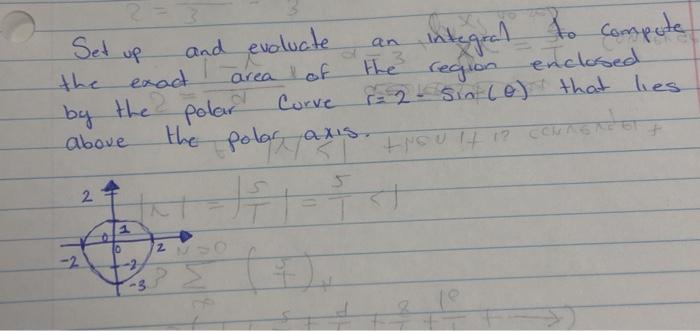 Set up and evaluate an integral to compute
the exact area of the region enclosed
by the polar curve r = 2 - sin(θ) that lies
above the polar axis.
2
1
0
-2
0
2
-2
-3